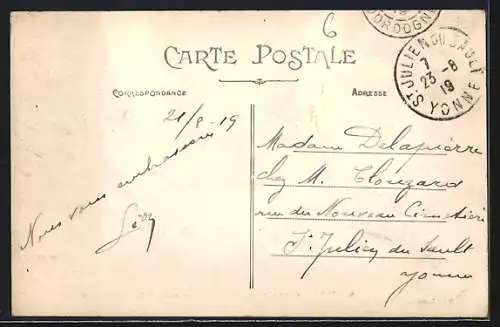 6
DORDOGNE
CARTE POSTALE
ST JULIEN DU SAULT
7
23-8
19
YONNE
CORRESPONDANCE
ADRESSE
21/8-19
Nous vous embrassons
Madame Delapierre
chez M. Clouzard
rue du Nouveau Cimetière
St Julien du Sault
Yonne